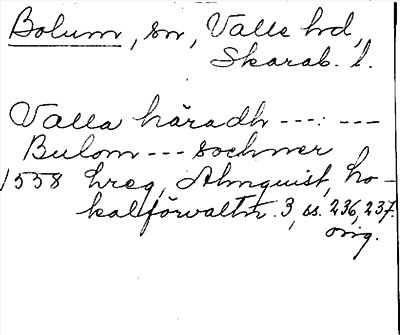 Bolum, sn, Valle hd,
Skarab. l.
Valla häradh ---: ---
Bulom --- sochner
1558 hreg, Almquist, Lo-
kalförvaltn. 3, ss. 236, 237.
orig.